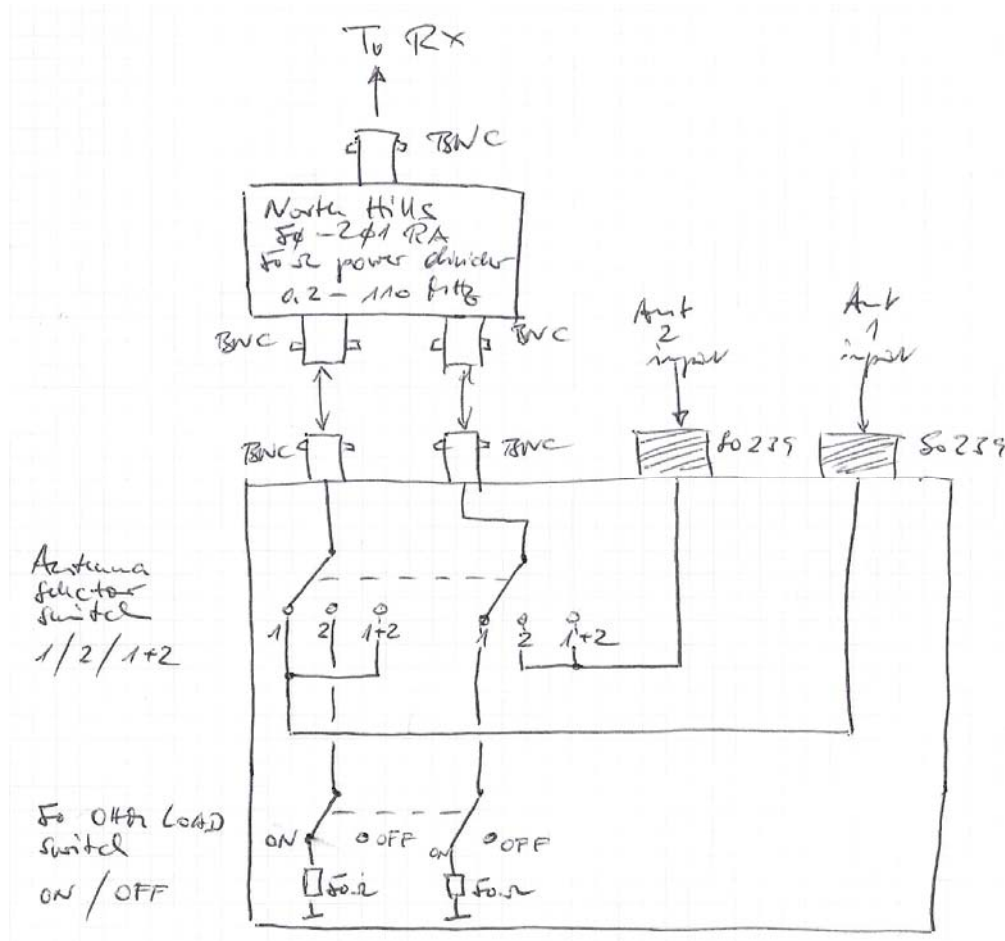 To RX
BNC
North Hills
5φ-2φ1 RA
50Ω power divider
0.2 - 110 MHz
BNC
BNC
Ant
2
input
Ant
1
input
BNC
BNC
So239
So239
Antenna
selector
switch
1/2/1+2
1
2
1+2
1
2
1+2
50 OHM LOAD
switch
ON / OFF
ON
OFF
ON
OFF
50Ω
50Ω